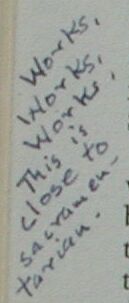 Works,
Works,
Works.
This is
close to
sacramen-
tarian.